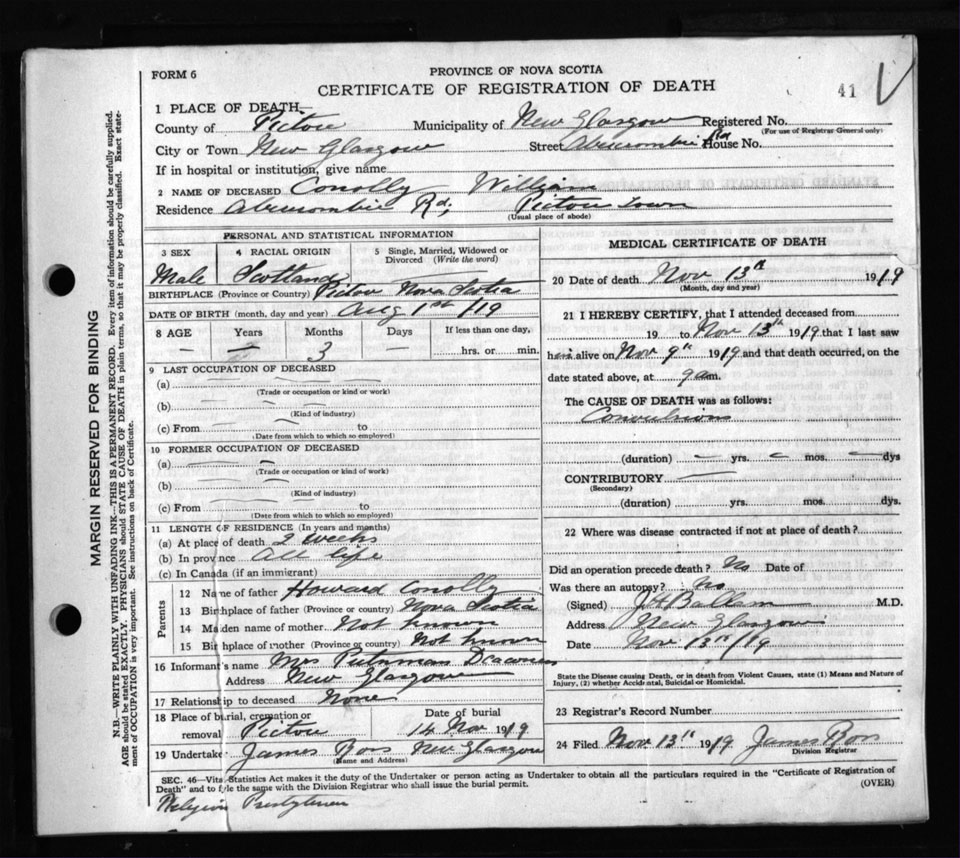 FORM 6
PROVINCE OF NOVA SCOTIA
CERTIFICATE OF REGISTRATION OF DEATH
41
1 PLACE OF DEATH—
County of Pictou Municipality of New Glasgow Registered No.
(For use of Registrar General only)
City or Town New Glasgow Street Abercrombie Rd House No.
If in hospital or institution, give name
2 NAME OF DECEASED Conolly William
Residence Abercrombie Rd; Pictou Town
(Usual place of abode)
PERSONAL AND STATISTICAL INFORMATION
3 SEX 4 RACIAL ORIGIN 5 Single, Married, Widowed or Divorced (Write the word)
Male Scotland
BIRTHPLACE (Province or Country) Pictou Nova Scotia
DATE OF BIRTH (month, day and year) Aug 1st /19
8 AGE Years Months Days If less than one day,
— — 3 — hrs. or min.
9 LAST OCCUPATION OF DECEASED
(a)
(Trade or occupation or kind or work)
(b)
(Kind of industry)
(c) From to
(Date from which to which so employed)
10 FORMER OCCUPATION OF DECEASED
(a)
(Trade or occupation or kind of work)
(b)
(Kind of industry)
(c) From to
(Date from which to which so employed)
11 LENGTH OF RESIDENCE (In years and months)
(a) At place of death 2 weeks
(b) In province All life
(c) In Canada (if an immigrant)
Parents
12 Name of father Howard Conolly
13 Birthplace of father (Province or country) Nova Scotia
14 Maiden name of mother Not known
15 Birthplace of mother (Province or country) Not known
16 Informant's name Mrs
Address New Glasgow
17 Relationship to deceased None
18 Place of burial, cremation or removal Pictou Date of burial 14 Nov 1919
19 Undertaker James Ross New Glasgow
(Name and Address)
MEDICAL CERTIFICATE OF DEATH
20 Date of death Nov 13th 1919
(Month, day and year)
21 I HEREBY CERTIFY, that I attended deceased from
19 to Nov 13th 1919 that I last saw
him alive on Nov 9th 1919 and that death occurred, on the
date stated above, at 9 a.m.
The CAUSE OF DEATH was as follows:
Convulsions
(duration) — yrs. — mos. — dys
CONTRIBUTORY —
(Secondary)
(duration) yrs. mos. dys.
22 Where was disease contracted if not at place of death?
Did an operation precede death? No Date of
Was there an autopsy? No
(Signed) M.D.
Address New Glasgow
Date Nov 13th /19
State the Disease causing Death, or in death from Violent Causes, state (1) Means and Nature of
Injury, (2) whether Accidental, Suicidal or Homicidal.
23 Registrar's Record Number
24 Filed Nov 13th 1919 James Ross
Division Registrar
SEC. 46—Vital Statistics Act makes it the duty of the Undertaker or person acting as Undertaker to obtain all the particulars required in the "Certificate of Registration of
Death" and to file the same with the Division Registrar who shall issue the burial permit. (OVER)
Religion Presbyterian
MARGIN RESERVED FOR BINDING
N.B.—WRITE PLAINLY WITH UNFADING INK—THIS IS A PERMANENT RECORD. Every item of information should be carefully supplied.
AGE should be stated EXACTLY. PHYSICIANS should STATE CAUSE OF DEATH in plain terms, so that it may be properly classified. Exact statement of OCCUPATION is very important. See instructions on back of Certificate.